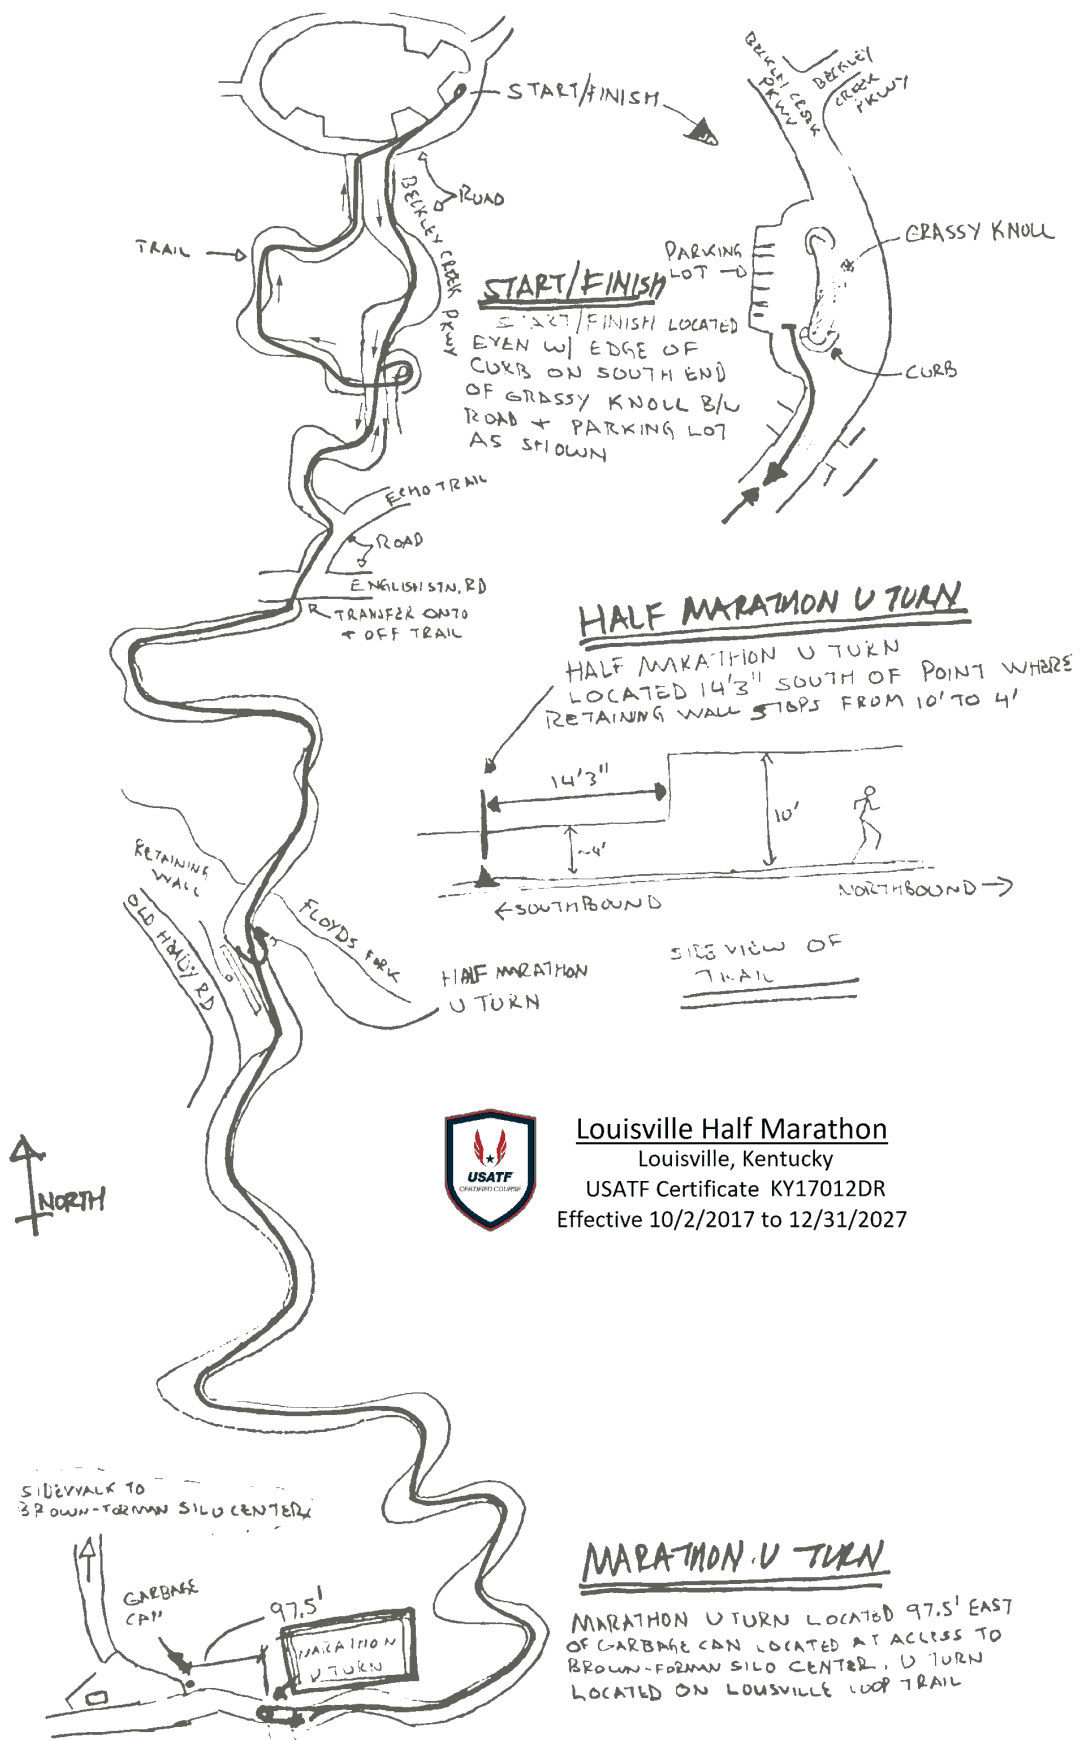 START/FINISH
BECKLEY CREEK PKWY
BECKLEY CREEK PKWY
ROAD
BECKLEY CREEK PKWY
TRAIL
GRASSY KNOLL
PARKING LOT
CURB
START/FINISH
START/FINISH LOCATED
EVEN W/ EDGE OF
CURB ON SOUTH END
OF GRASSY KNOLL B/W
ROAD + PARKING LOT
AS SHOWN
ECHO TRAIL
ROAD
ENGLISH STN. RD
TRANSFER ONTO
+ OFF TRAIL
HALF MARATHON U TURN
HALF MARATHON U TURN
LOCATED 14'3" SOUTH OF POINT WHERE
RETAINING WALL STOPS FROM 10' TO 4'
14'3"
10'
~4'
NORTHBOUND
SOUTHBOUND
SIDE VIEW OF
TRAIL
RETAINING
WALL
OLD HEADY RD
FLOYDS FORK
HALF MARATHON
U TURN
NORTH
USATF
CERTIFIED COURSE
Louisville Half Marathon
Louisville, Kentucky
USATF Certificate KY17012DR
Effective 10/2/2017 to 12/31/2027
SIDEWALK TO
BROWN-FORMAN SILO CENTER
GARBAGE
CAN
97.5'
MARATHON
U TURN
MARATHON U TURN
MARATHON U TURN LOCATED 97.5' EAST
OF GARBAGE CAN LOCATED AT ACCESS TO
BROWN-FORMAN SILO CENTER. U TURN
LOCATED ON LOUSVILLE LOOP TRAIL